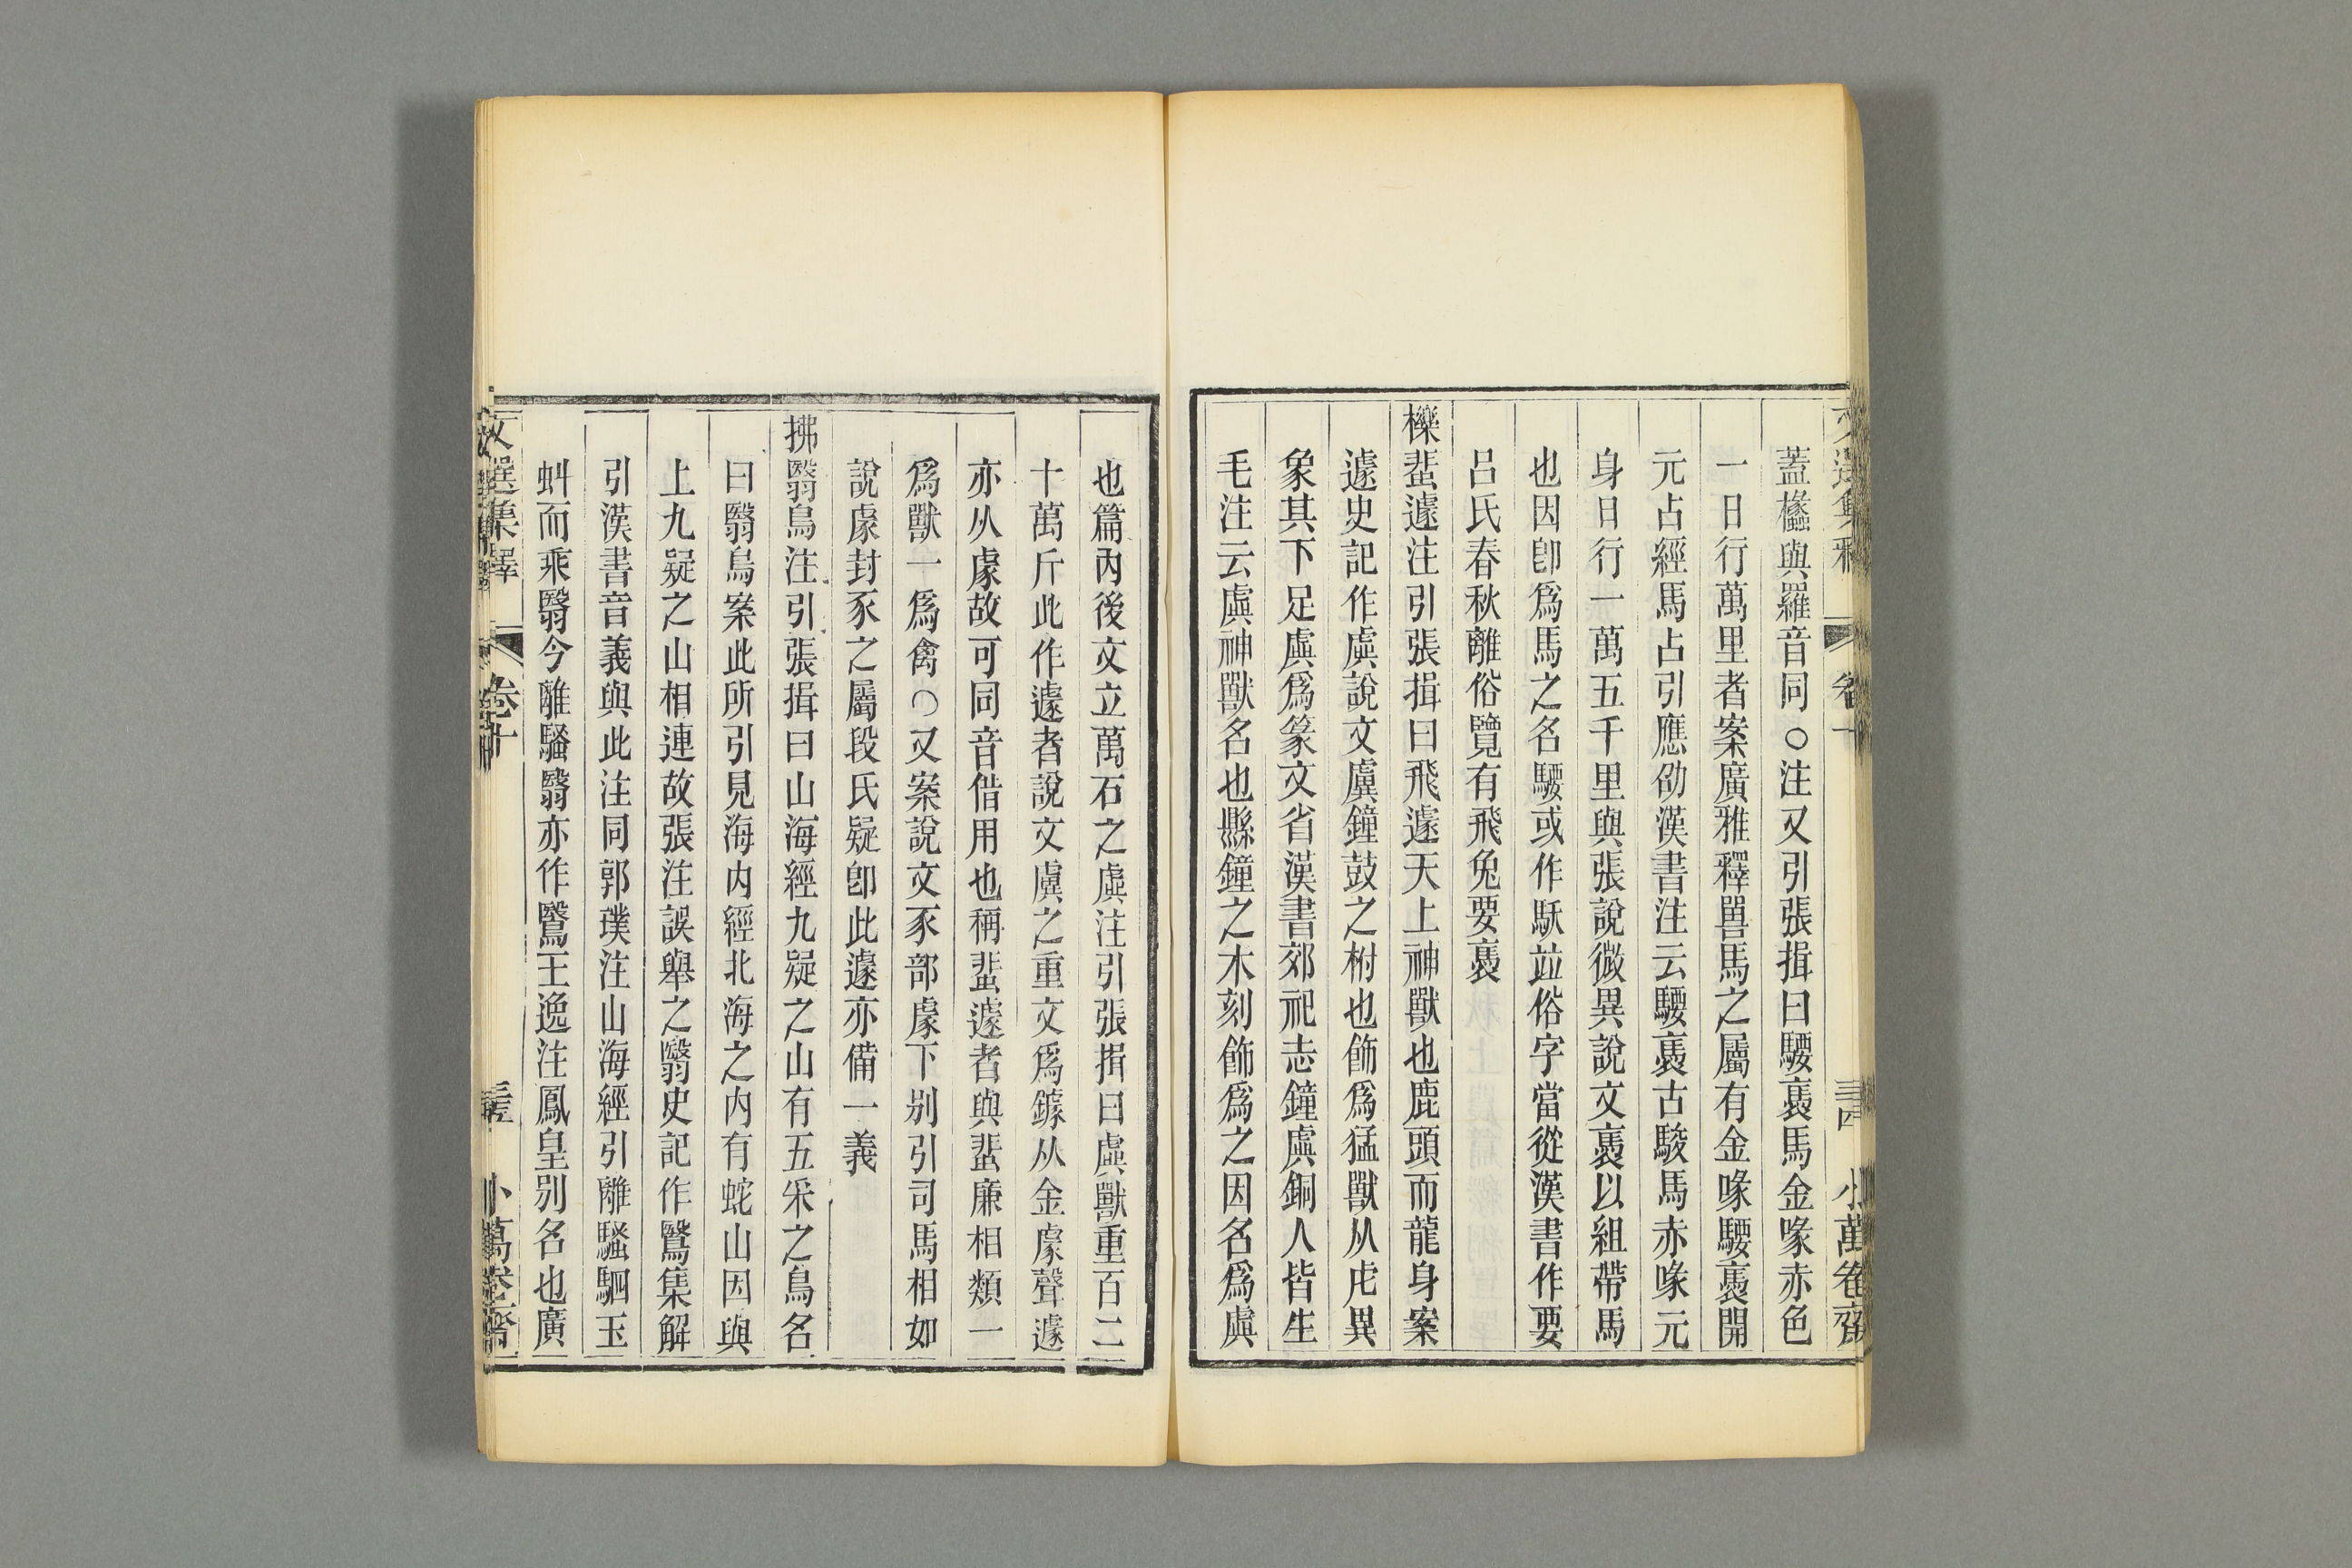 文選集釋 卷十 三四 小萬卷齋
蓋欙與羅音同○注又引張揖曰騕褭馬金喙赤色
一日行萬里者案廣雅釋嘼馬之屬有金喙騕褭開
元占經馬占引應劭漢書注云騕褭古駿馬赤喙元
身日行一萬五千里與張說微異說文褭以組帶馬
也因卽爲馬之名騕或作䭿竝俗字當從漢書作要
呂氏春秋離俗覽有飛兔要褭
櫟蜚遽注引張揖曰飛遽天上神獸也鹿頭而龍身案
遽史記作虡說文虡鐘鼓之柎也飾爲猛獸从虍異
象其下足虡爲篆文省漢書郊祀志鐘虡銅人皆生
毛注云虡神獸名也縣鐘之木刻飾爲之因名爲虡
也篇內後文立萬石之虡注引張揖曰虡獸重百二
十萬斤此作遽者說文虡之重文爲鐻从金豦聲遽
亦从豦故可同音借用也稱蜚遽者與蜚廉相類一
爲獸一爲禽○又案說文豕部豦下别引司馬相如
說豦封豕之屬段氏疑卽此遽亦備一義
拂翳鳥注引張揖曰山海經九疑之山有五采之鳥名
曰翳鳥案此所引見海內經北海之內有蛇山因與
上九疑之山相連故張注誤舉之翳史記作鷖集解
引漢書音義與此注同郭璞注山海經引離騷駟玉
虯而乘翳今離騷翳亦作鷖王逸注鳳皇别名也廣
文選集釋 卷十 三五 小萬卷齋